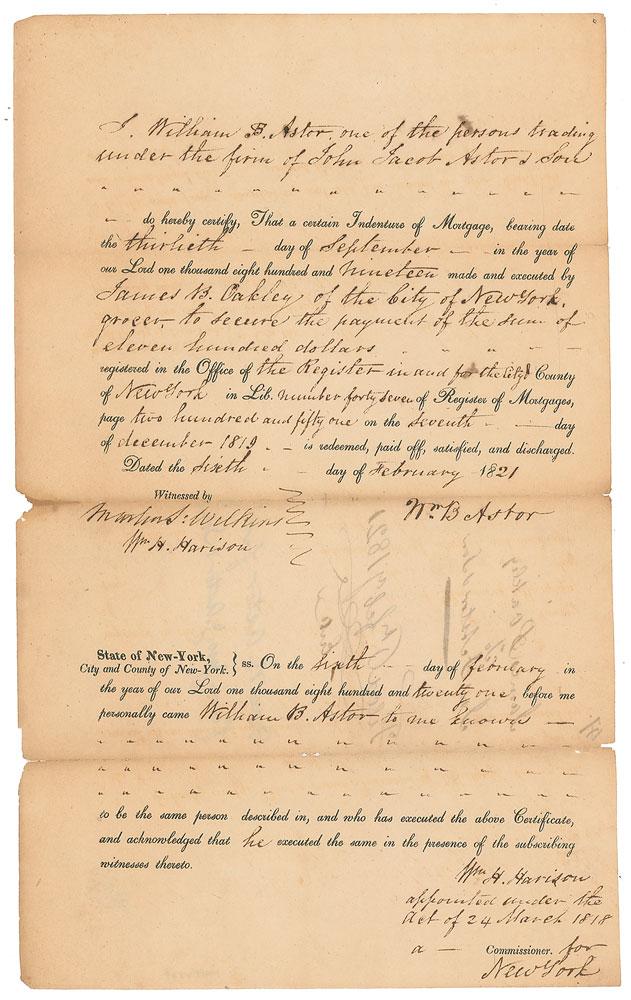 I, William B. Astor, one of the persons trading
under the firm of John Jacob Astor & Son
do hereby certify, That a certain Indenture of Mortgage, bearing date
the thirtieth day of September in the year of
our Lord one thousand eight hundred and nineteen made and executed by
James B. Oakley of the City of New York,
grocer, to secure the payment of the sum of
eleven hundred dollars
registered in the Office of the Register in and for the City & County
of New York in Lib. number forty seven of Register of Mortgages,
page two hundred and fifty one on the seventh day
of december 1819 is redeemed, paid off, satisfied, and discharged.
Dated the sixth day of February 1821
Witnessed by
Martin S: Wilkins Wm B Astor
Wm H. Harison
State of New-York,
City and County of New-York. } ss. On the sixth day of february in
the year of our Lord one thousand eight hundred and twenty one, before me
personally came William B. Astor to me known
to be the same person described in, and who has executed the above Certificate,
and acknowledged that he executed the same in the presence of the subscribing
witnesses thereto.
Wm H. Harison
appointed under the
Act of 24 March 1818
a — Commissioner. for
New York